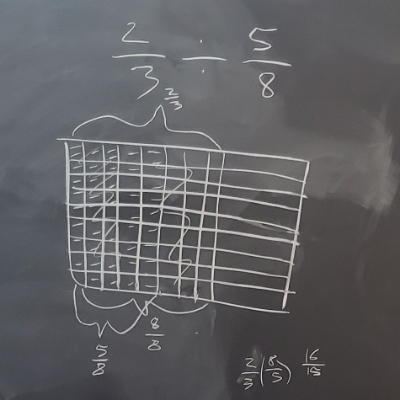 2/3 ÷ 5/8
2/3
5/8
8/8
2/3 (8/5) 16/15